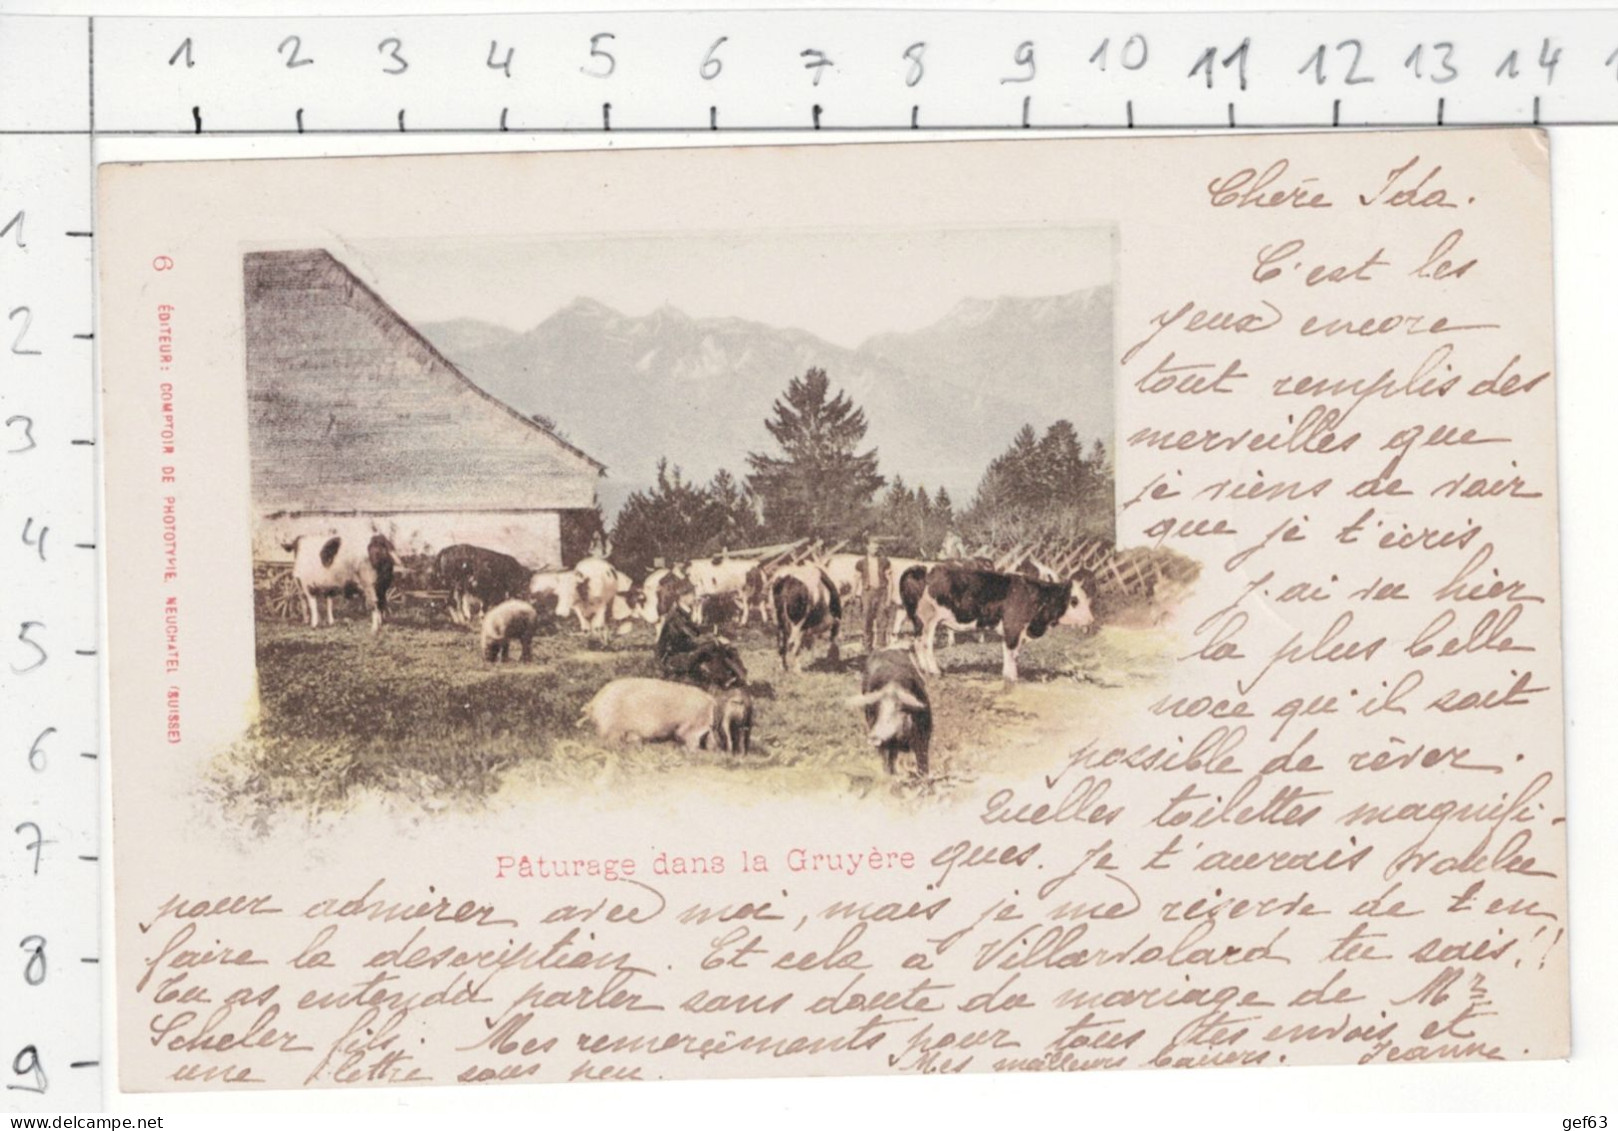 1 2 3 4 5 6 7 8 9 10 11 12 13 14
1
2
3
4
5
6
7
8
9
6 ÉDITEUR: COMPTOIR DE PHOTOTYPIE NEUCHATEL (SUISSE)
Chère Ida.
C'est les
yeux encore
tout remplis des
merveilles que
je viens de voir
que je t'écris
J'ai vu hier
la plus belle
noce qu'il soit
possible de rêver.
Quelles toilettes magnifi-
Pâturage dans la Gruyère
ques. Je t'aurais voulue
pour admirer avec moi, mais je me réserve de t'en
faire la description. Et cela à Villarvolard tu sais!!
Tu as entendu parler sans doute du mariage de Mr
Scheler fils. Mes remerciments pour tous tes envois et
une lettre sous peu. Mes meilleurs baisers. Jeanne.
delcampe.net
gef63